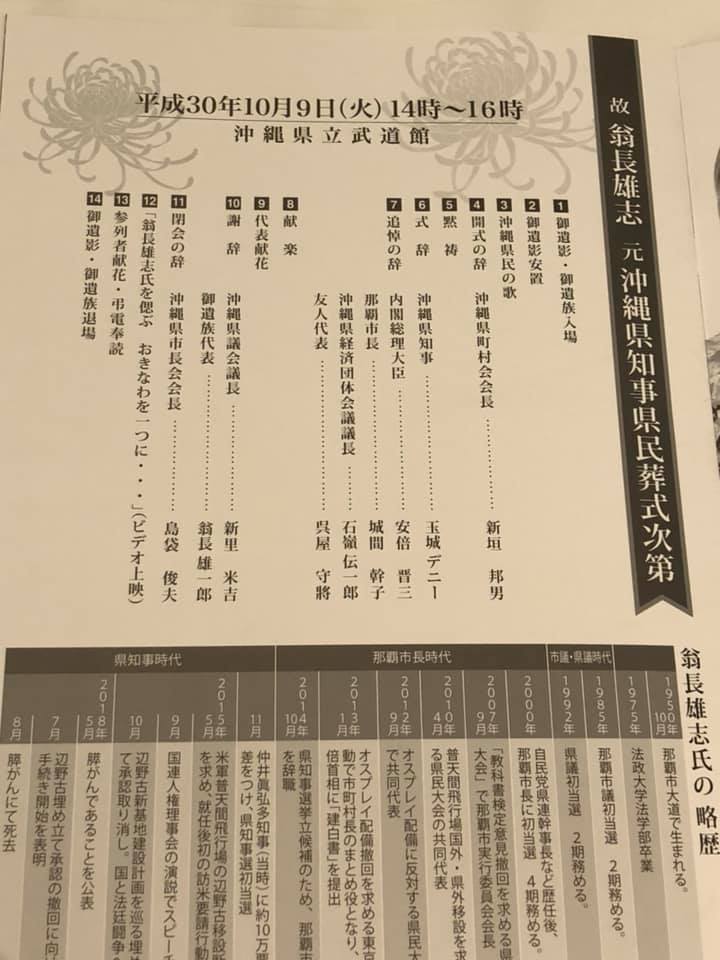 故 翁長雄志 元 沖縄県知事県民葬式次第
平成30年10月9日(火) 14時〜16時
沖縄県立武道館
1 御遺影・御遺族入場
2 御遺影安置
3 沖縄県民の歌
4 開式の辞 沖縄県町村会会長 ……………… 新垣 邦男
5 黙祷
6 式辞 沖縄県知事 ……………… 玉城デニー
7 追悼の辞 内閣総理大臣 ……………… 安倍 晋三
那覇市長 ……………… 城間 幹子
沖縄県経済団体会議議長 ……… 石嶺伝一郎
友人代表 ……………… 呉屋 守將
8 献楽
9 代表献花
10 謝辞 沖縄県議会議長 ……………… 新里 米吉
御遺族代表 ……………… 翁長 雄一郎
11 閉会の辞 沖縄県市長会会長 ……………… 島袋 俊夫
12 「翁長雄志氏を偲ぶ おきなわを一つに・・・」(ビデオ上映)
13 参列者献花・弔電奉読
14 御遺影・御遺族退場
翁長雄志氏の 略歴
市議・県議時代
那覇市長時代
県知事時代
1950年10月 那覇市大道で生まれる。
1975年 法政大学法学部卒業
1985年 那覇市議初当選 2期務める。
1992年 県議初当選 2期務める。
2000年 自民党県連幹事長など歴任後、
那覇市長に初当選 4期務める。
2007年9月 「教科書検定意見撤回を求める県
大会」で那覇市実行委員会会長
2010年4月 普天間飛行場国外・県外移設を求
る県民大会の共同代表
2012年9月 オスプレイ配備に反対する県民大
で共同代表
2013年1月 オスプレイ配備撤回を求める東京
動で市町村長のまとめ役となり、
倍首相に「建白書」を提出
2014年10月 県知事選挙立候補のため、那覇市
を辞職
11月 仲井眞弘多知事(当時)に約10万票
差をつけ、県知事選初当選
2015年5月 米軍普天間飛行場の辺野古移設断
を求め、就任後初の訪米要請行動
9月 国連人権理事会の演説でスピーチ
10月 辺野古新基地建設計画を巡る埋め
て承認取り消し。国と法廷闘争へ
2018年5月 膵がんであることを公表
7月 辺野古埋め立て承認の撤回に向け
手続き開始を表明
8月 膵がんにて死去